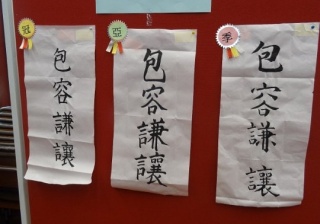 冠
包容謙讓
亞
包容謙讓
季
包容謙讓